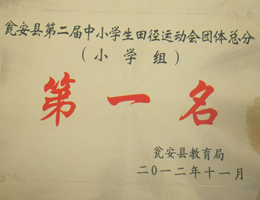 瓮安县第二届中小学生田径运动会团体总分
（小学组）
第一名
瓮安县教育局
二〇一二年十一月